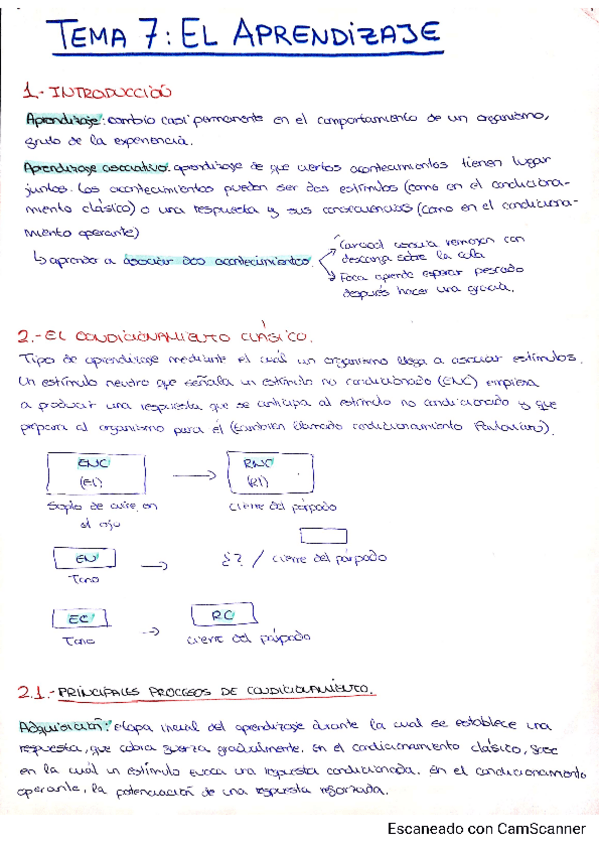 TEMA 7: EL APRENDIZAJE
1.- INTRODUCCIÓN
Aprendizaje: cambio casi permanente en el comportamiento de un organismo,
fruto de la experiencia.
Aprendizaje asociativo: aprendizaje de que ciertos acontecimientos tienen lugar
juntos. Los acontecimientos pueden ser dos estímulos (como en el condiciona-
miento clásico) o una respuesta y sus consecuencias (como en el condiciona-
miento operante)
↳ aprender a asociar dos acontecimientos.
Caracol asocia remojón con
descarga sobre la cola
Foca aprende esperar pescado
después hacer una gracia.
2.- EL CONDICIONAMIENTO CLÁSICO.
Tipo de aprendizaje mediante el cuál un organismo llega a asociar estímulos.
Un estímulo neutro que señala un estímulo no condicionado (ENC) empieza
a producir una respuesta que se anticipa al estímulo no condicionado y que
prepara al organismo para él (también llamado condicionamiento Pavloviano).
ENC (EI) → RNC (RI)
Soplo de aire en el ojo
cierre del párpado
EN → ¿? / cierre del párpado
Tono
EC → RC
Tono
cierre del párpado
2.1.- PRINCIPALES PROCESOS DE CONDICIONAMIENTO.
Adquisición: etapa inicial del aprendizaje durante la cual se establece una
respuesta, que cobra fuerza gradualmente. En el condicionamiento clásico, fase
en la cuál un estímulo evoca una respuesta condicionada. En el condicionamiento
operante, la potenciación de una respuesta reforzada.
Escaneado con CamScanner